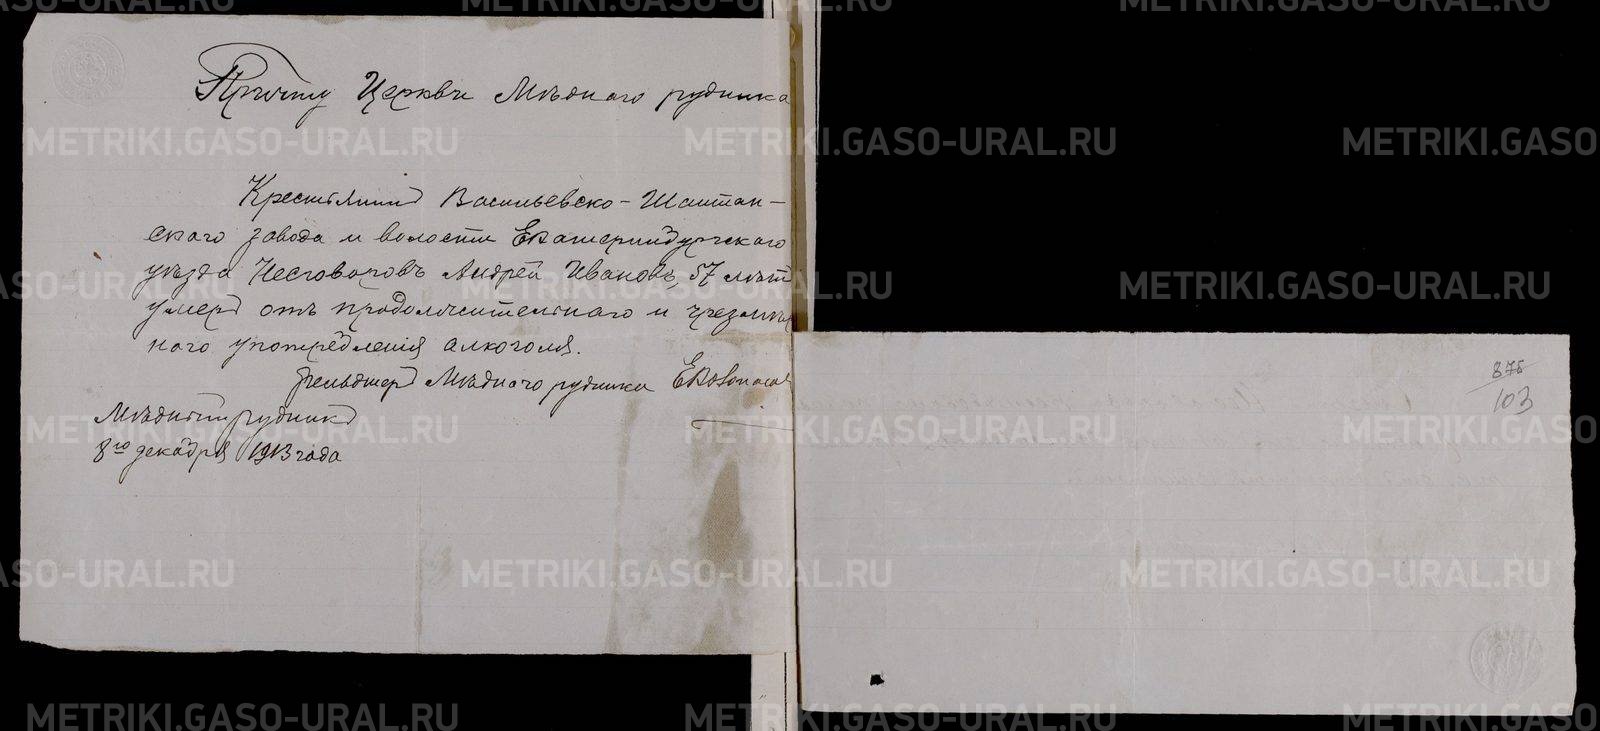 Причту Церкви Мѣднаго рудника
Крестьянинъ Васильевско-Шайтан-
скаго завода и волости Екатеринбургскаго
уѣзда Несговоровъ Андрей Ивановъ, 57 лѣтъ
умеръ отъ продолжительнаго и чрезмѣр
наго употребленія алкоголя.
Фельдшеръ Мѣднаго рудника
Мѣдный рудникъ
8го декабря 1913 года
875
103
METRIKI.GASO-URAL.RU